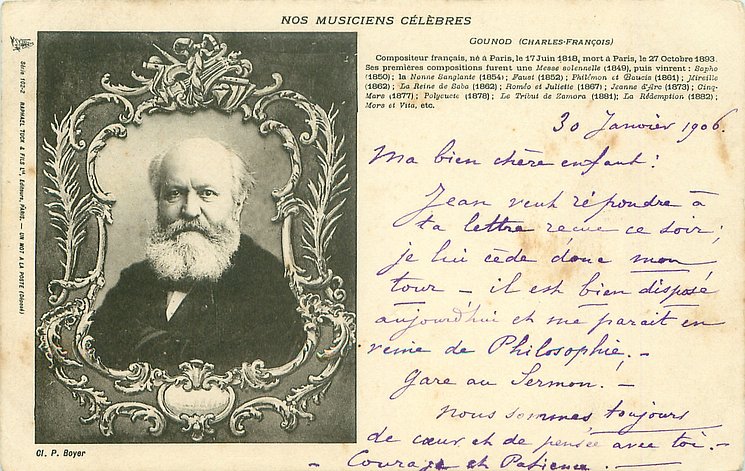 NOS MUSICIENS CÉLÈBRES
GOUNOD (CHARLES-FRANÇOIS)
Compositeur français, né à Paris, le 17 Juin 1818, mort à Paris, le 27 Octobre 1893.
Ses premières compositions furent une Messe solennelle (1849), puis vinrent : Sapho
(1850); la Nonne Sanglante (1854); Faust (1852); Philémon et Baucis (1861); Mireille
(1862); La Reine de Saba (1862); Roméo et Juliette (1867); Jeanne d'Arc (1873); Cinq-
Mars (1877); Polyeucte (1878); Le Tribut de Zamora (1881); La Rédemption (1882);
Mors et Vita, etc.
30 Janvier 1906.
Ma bien chère enfant!
Jean veut répondre à
ta lettre recue ce soir;
je lui cède donc mon
tour – il est bien disposé
aujourd'hui et me parait en
veine de Philosophie. –
Gare au Sermon. –
Nous sommes toujours
de cœur et de pensée avec toi. –
– Courage et Patience.
Série 162-2 RAPHAEL TUCK & FILS Ltd, Editeurs, PARIS. — UN MOT A LA POSTE (Déposé)
Cl. P. Boyer